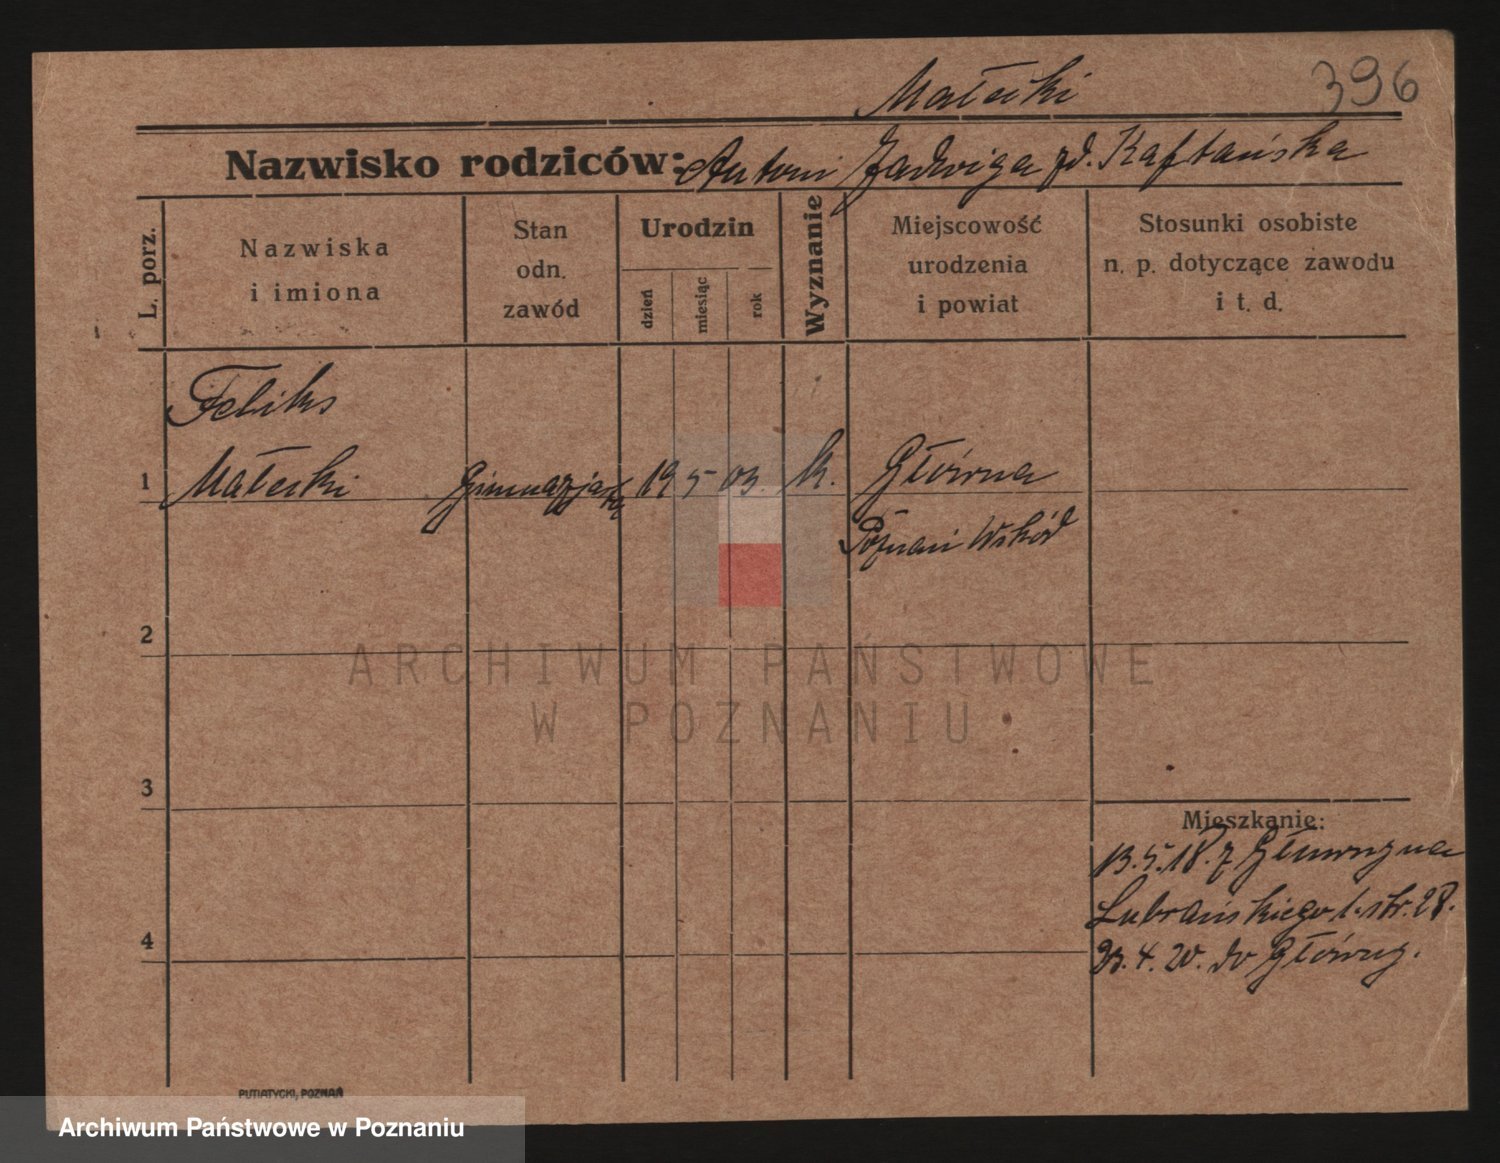 Małecki
396
Nazwisko rodziców: Antoni Jadwiga zd. Kaftańska
L. porz.
Nazwiska
i imiona
Stan
odn.
zawód
Urodzin
dzień
miesiąc
rok
Wyznanie
Miejscowość
urodzenia
i powiat
Stosunki osobiste
n. p. dotyczące zawodu
i t. d.
Feliks
1 Małecki 19 5 03. k. Główna
Poznań Wschód
2
3
4
Mieszkanie:
13.5.18. z
Lubrańskiego 1. str. 28.
23.4.20. do Główny.
PUTIATYCKI, POZNAŃ
ARCHIWUM PAŃSTWOWE
W POZNANIU
Archiwum Państwowe w Poznaniu